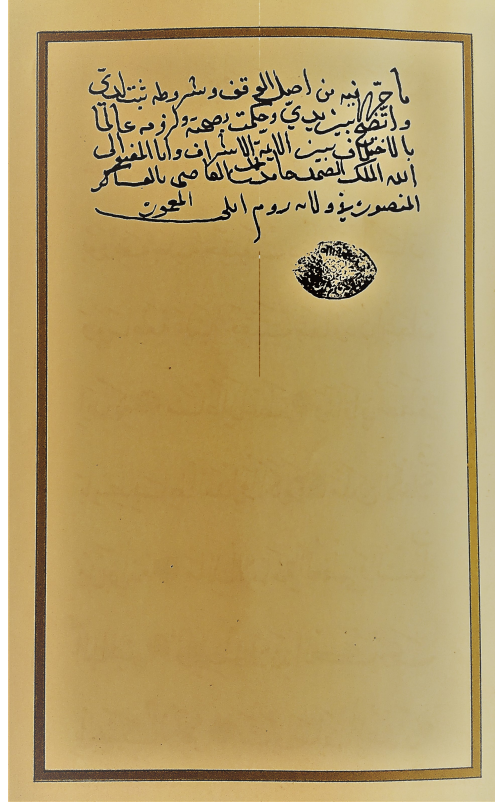 ما حرّر فيه من اصل الوقف وشروطه ثبت لديّ
واتّضح بين يديّ وحكمت بصحته ولزومه عالما
بالاختلاف بين الايمّة الاشراف وانا المفتقر الى
الله الملك الصمد حامد بن محمد القاضى بالعساكر
المنصورة في ولاية روم ايلى المعمورة